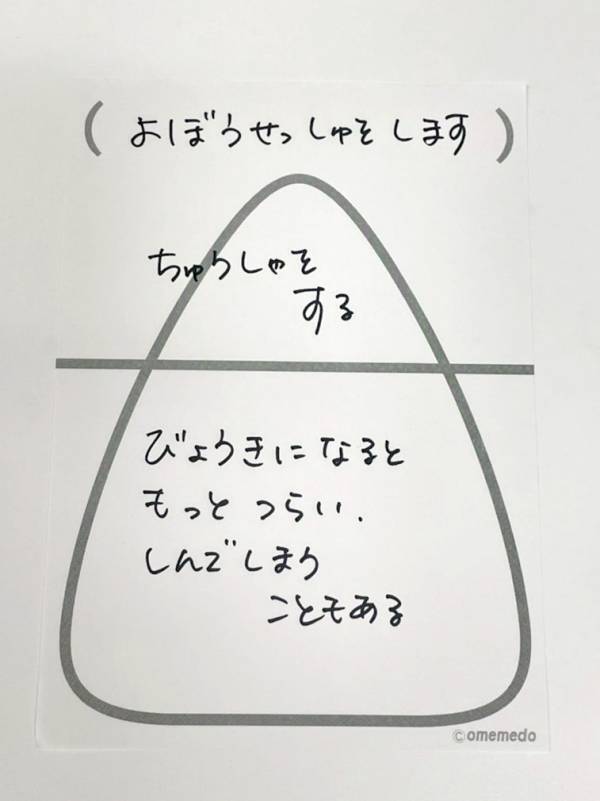 (よぼうせっしゅをします)
ちゅうしゃを
する
びょうきになると
もっと つらい.
しんでしまう
こともある
©omemedo